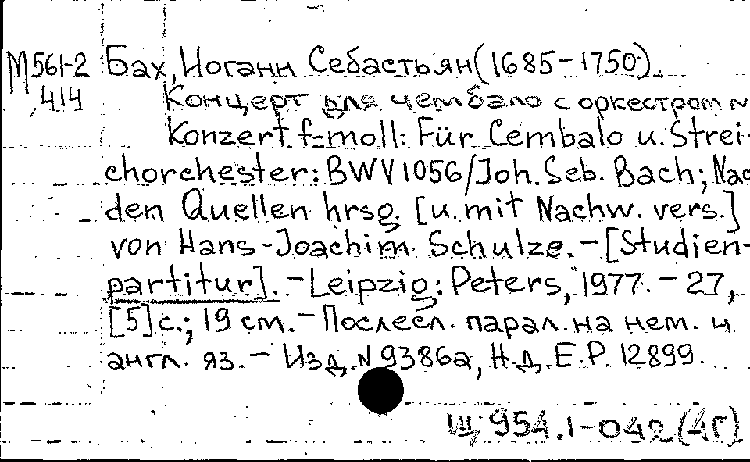 М561-2 Бах, Иоганн Себастьян (1685-1750).
414 Концерт для чембало с оркестром
Konzert f-moll: Für Cembalo u. Strei-
chorchester: BWV 1056/Joh. Seb. Bach; Nac
den Quellen hrsg. [u. mit Nachw. vers.]
von Hans-Joachim Schulze. - [Studien-
partitur]. - Leipzig: Peters, 1977. - 27,
[5] с.; 19 см. - Послесл. парал. на нем. и
англ. яз. - Изд. N 9386a, Н.д. E.P. 12899.
Щ 954.1-042(4Г)